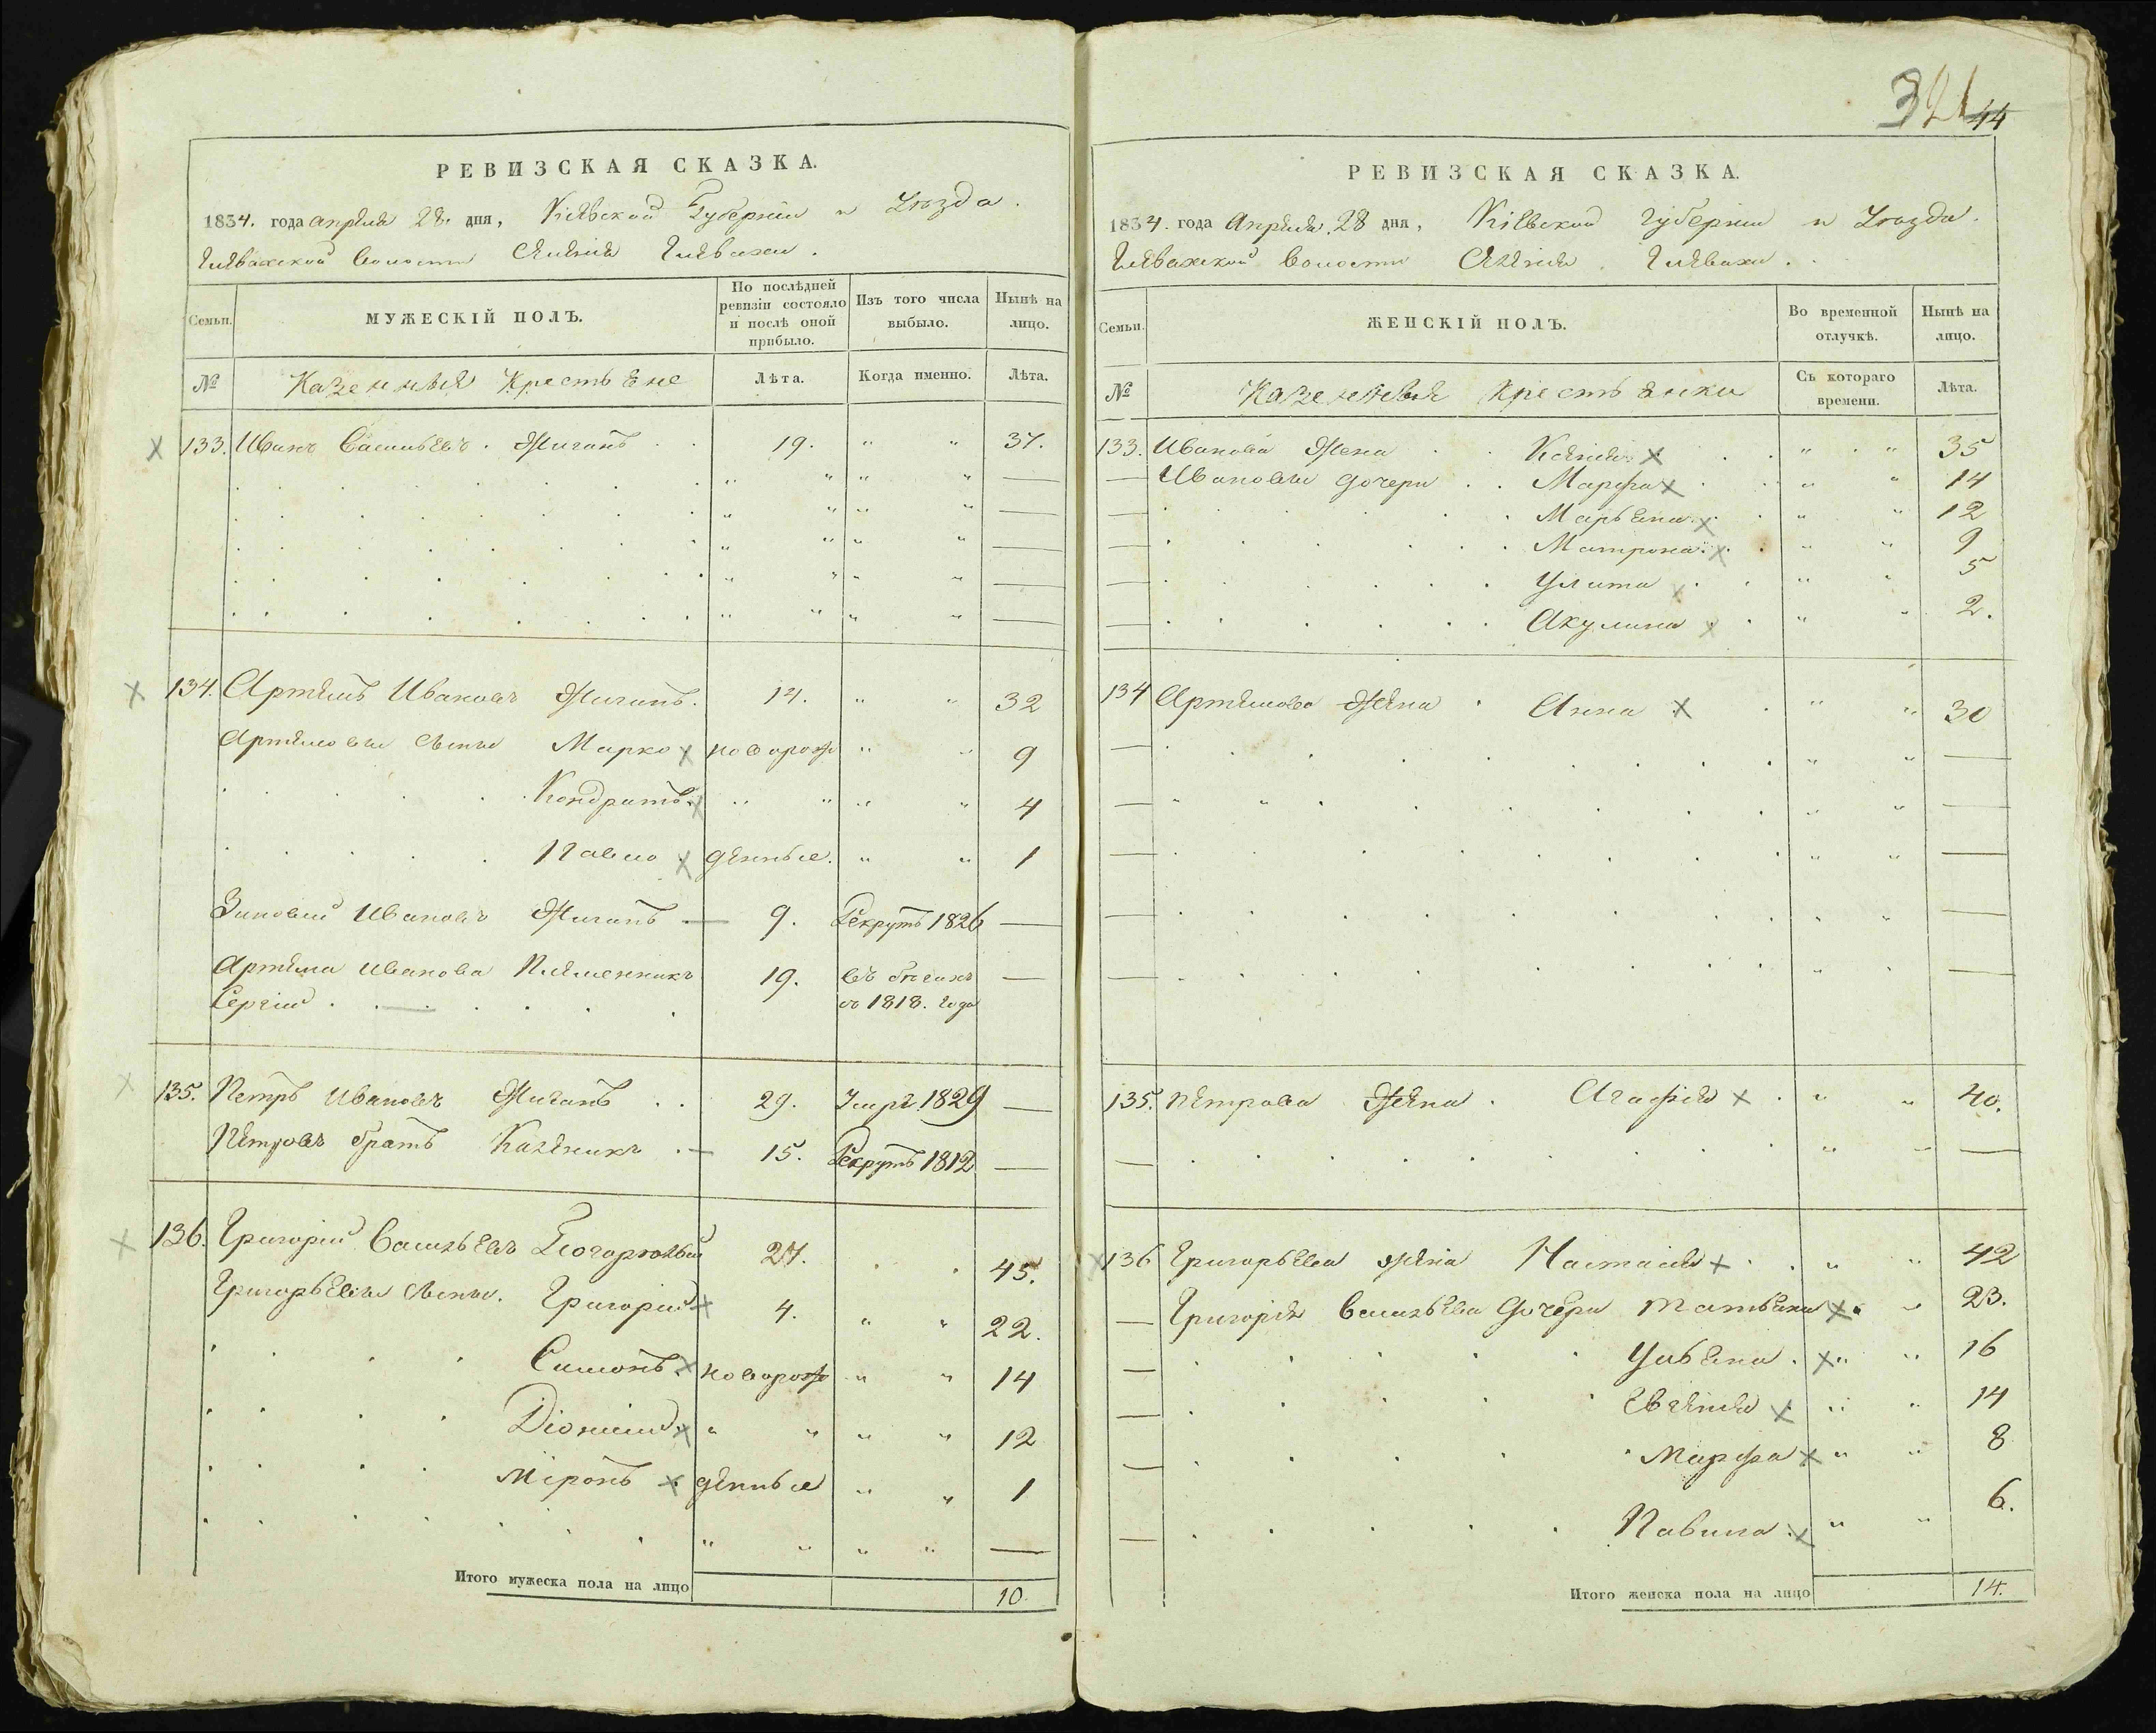 321 44
РЕВИЗСКАЯ СКАЗКА.
1834. года апреля 28. дня, Кіевской Губерніи и Уезда.
Глевахской Волости Селенія Глевахи.
Семьи. МУЖЕСКІЙ ПОЛЪ. По послѣдней ревизіи состояло и послѣ оной прибыло. Изъ того числа выбыло. Нынѣ на лицо.
№ Казенныя Крестьяне Лѣта. Когда именно. Лѣта.
133. Иванъ Васильевъ Жиганъ 19. " " 37.
134. Артемъ Ивановъ Жиганъ. 14. " " 32
Артемовы сыны Марко новорож " " 9
Кондратъ " " " " 4
Павло денные. " " 1
Зиновій Ивановъ Жиганъ — 9. Рекрутъ 1826 —
Артема Иванова Племенникъ 19. въ бегахъ —
Сергій съ 1818. года
135. Петръ Ивановъ Жиганъ 29. Умръ 1829 —
Петровъ братъ Каленикъ — 15. Рекрутъ 1812 —
136. Григорій Васильевъ 27. 45.
Григорьевы сыны. Григорій 4. " " 22.
Симонъ новорож " " 14
Діонисій " " " " 12
Міронъ денные " " 1
" " " " —
Итого мужеска пола на лицо 10.
РЕВИЗСКАЯ СКАЗКА.
1834. года Апреля. 28 дня, Кіевской Губерніи и Уезда.
Глевахской Волости Селенія Глевахи.
Семьи. ЖЕНСКІЙ ПОЛЪ. Во временной отлучкѣ. Нынѣ на лицо.
№ Казенныя Крестьянки Съ котораго времени. Лѣта.
133. Иванова Жена Ксенія " " 35
— Ивановы дочери Марфа " " 14
— Марьяна " " 12
— Матрона " " 9
— Улита " " 5
— Акулина " " 2.
134 Артемова Жена Анна " " 30
135. Петрова Жена Агафія " " 40.
136 Григорьева жена Настасія " " 42
— Григорія Васильева Дочери Татьяна " " 23.
— Ульяна " " 16
— Евгенія " " 14
— Марфа " " 8
— Павлина " " 6.
Итого женска пола на лицо 14.